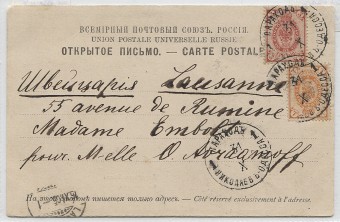 ВСЕМІРНЫЙ ПОЧТОВЫЙ СОЮЗЪ. РОССІЯ.
UNION POSTALE UNIVERSELLE RUSSIE.
ОТКРЫТОЕ ПИСЬМО. — CARTE POSTALE
Швейцарія Lausanne
55 avenue de Rumine
Madame
pour M-elle O.
ПАРАХОДЪ
НИКОЛАЕВЪ
На этой сторонѣ пишется только адресъ. — Côté réservé exclusivement à l'adresse.